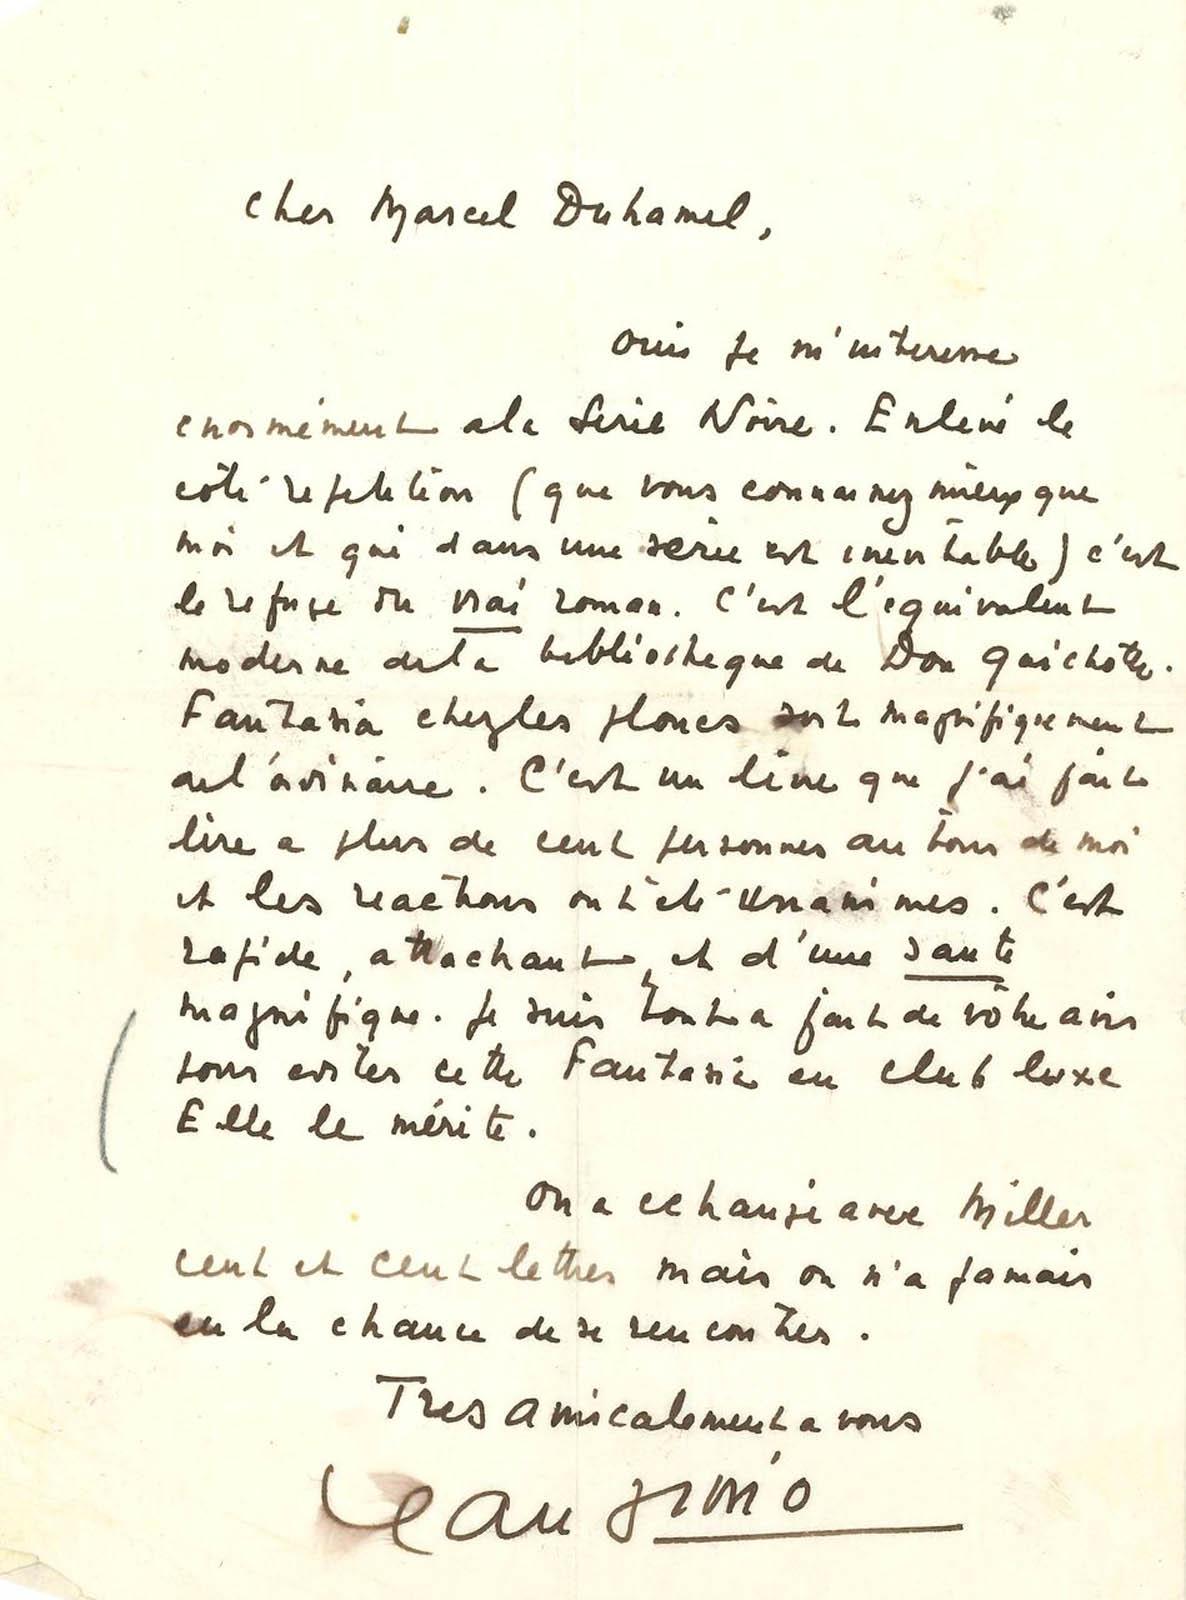 Cher Marcel Duhamel,
Oui je m'interesse
enormément a la Serie Noire. Enlevé le
côté repetition (que vous connaissez mieux que
moi et qui dans une serie est inevitable) c'est
le refuge du vrai roman. C'est l'equivalent
moderne de la bibliotheque de Don Quichotte.
Fantasia chez les ploucs sort magnifiquement
de l'ordinaire. C'est un livre que j'ai fait
lire a plus de cent personnes autour de moi
et les reactions ont été unanimes. C'est
rapide, attachant, et d'une santé
magnifique. Je suis tout a fait de vôtre avis
pour editer cette Fantasia en club luxe
Elle le mérite.
On a echangé avec Miller
cent et cent lettres mais on n'a jamais
eu la chance de se rencontrer.
Tres amicalement a vous
Jean Giono